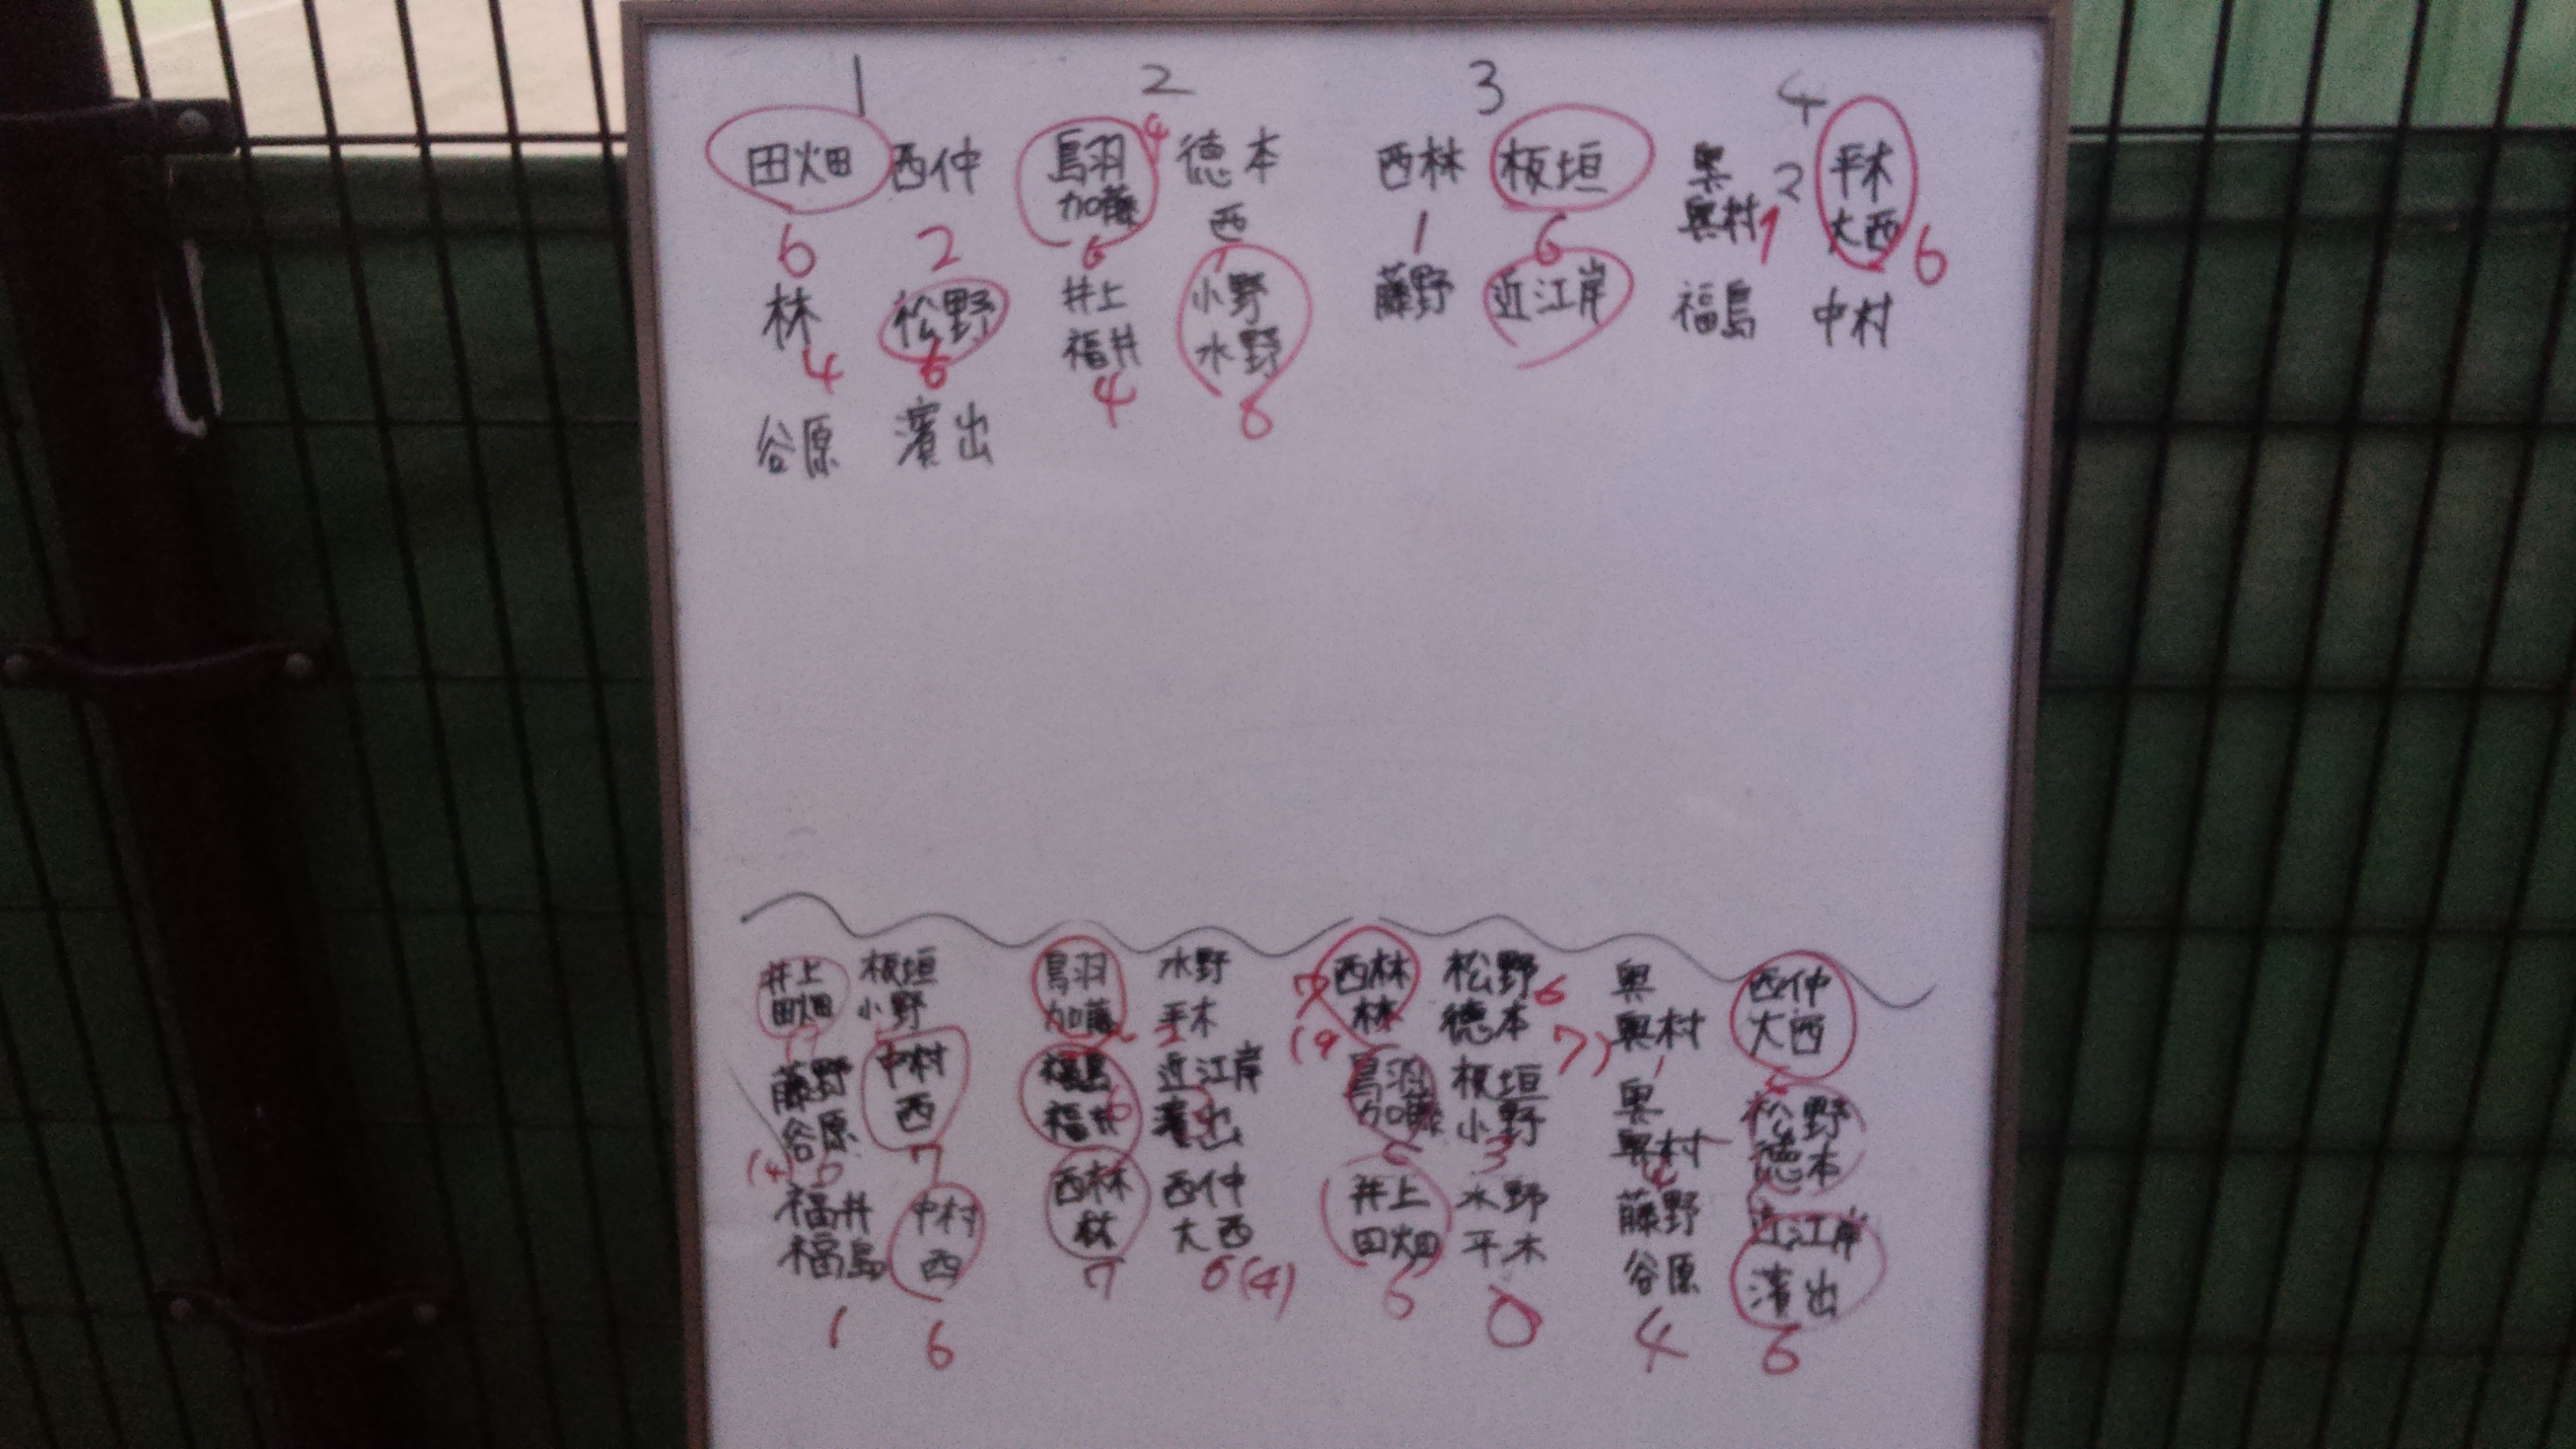 1 2 3 4
田畑 西仲 鳥羽 4 徳本 西林 板垣 奥 2 平木
加藤 西 奥村 1 大西 6
6 2 6 1 1 6
林 松野 井上 小野 藤野 近江岸 福島 中村
4 6 福井 水野
4 6
谷原 濱出
井上 板垣 鳥羽 水野 7 西林 松野 6 奥 西仲
田畑 小野 加藤 平木 林 徳本 奥村 大西
藤野 中村 福島 近江岸 鳥羽 板垣 奥 松野
谷原 西 福井 濱出 加藤 小野 奥村 徳本
(4) 6 7 6 3
福井 中村 西林 西仲 井上 水野 藤野 近江岸
福島 西 林 大西 田畑 平木 谷原 濱出
1 6 7 6(4) 6 0 4 6